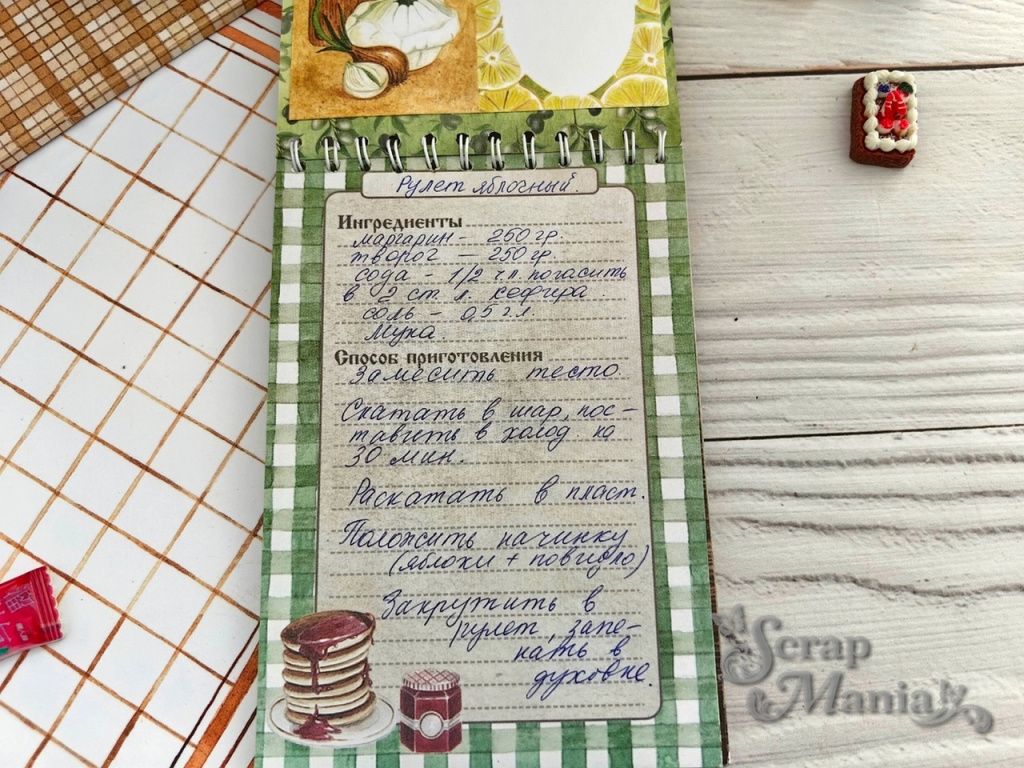 Рулет яблочный.
Ингредиенты
маргарин - 250 гр.
творог - 250 гр.
сода - 1/2 ч.л. погасить
в 2 ст. л. кефира
соль - 0,5 ч.л.
Мука
Способ приготовления
Замесить тесто.
Скатать в шар, пос-
тавить в холод на
30 мин.
Раскатать в пласт.
Положить начинку
(яблоки + повидло)
Закрутить в
рулет, запе-
кать в
духовке.
Scrap
Mania